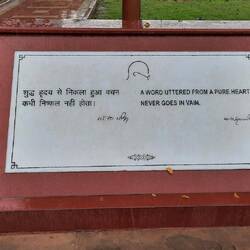 शुद्ध हृदय से निकला हुआ वचन
कभी निष्फल नहीं होता।
A WORD UTTERED FROM A PURE HEART
NEVER GOES IN VAIN.